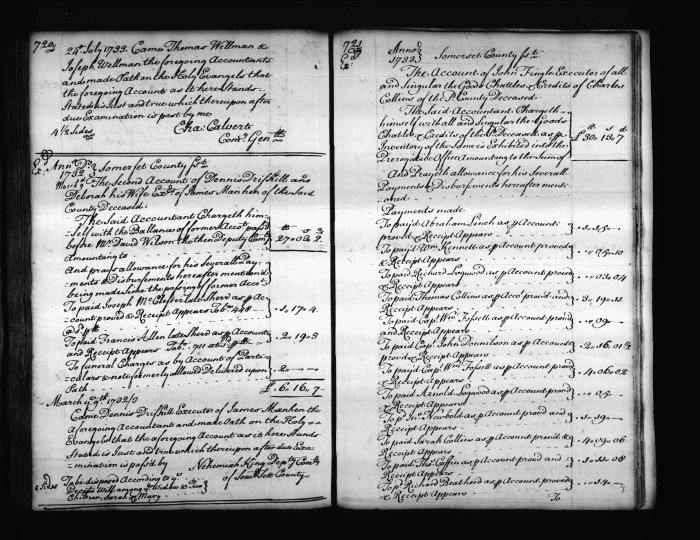 720
24th July 1733. Came Thomas Wellman &
Joseph Wellman the foregoing Accountants
and made Oath on the Holy Evangels that
the foregoing Account as it here Stands
Stated is Just and true which thereupon after
due Examination is past by me
4 1/2 Sides Cha: Calvert
Com.y Gen.ll
Ann.o D.i Somerset County ss.t
1732
March 9 The Second Account of Dennis Driskill and
Deborah his Wife Ex.rs of James Manhen of the Said
County Deceased.
The Said Accountant Chargeth him-
self with the Ballance of former Acco.t pass'd
before M.r David Wilson the then Deputy Com.y
Amounting to
27=0
And prays allowance for his Severall Pay-
ments & Disbursements hereafter mentiond
being made Since the passing of former Acco.t
To paid Joseph McClester late Sherif as p Ac-
count proved & Receipt Appears Tob.o 448
1, 17=4
To paid Francis Allen late Sherd as p Account
and Receipt Appears Tob.o 711
2= 19=3
To funeral Charges as by Account of Parti-
culars & not formerly allowed Delivered upon
Oath
2=
£ 6=16=7
March y.e 9.th 1732/3
Came Dennis Driskill Executor of James Manhen the
aforegoing Accountant and made Oath on the Holy
Evangels that the aforegoing Account as it here Stands
Stated is Just and true which thereupon after due Exa-
mination is pass'd by Nehemiah King Dep.ty Com.ry
of Somersett County
To be disposed According to y.e
Deced.ts Will among y.e Widow & Two
Children, Sarah & Mary
721
Anno D.i Somerset County ss.t
1733
The Account of John Tingle Executor of all
and Singular the Goods Chattles & Credits of Charles
Collins of the s.d County Deceased
The Said Accountant Chargeth
himself with all and Singular the Goods
Chatles & Credits of the s.d Deceased as p
Inventory of the Same is Exhibited into the
Prerogative Office Amounting to the Sum of
£30=13=7
And Prayeth allowance for his Severall
Payments & Disbursements hereafter menti-
oned
Payments made
To paid Abraham Linch as p Account
proved & Receipt Appears
To paid W.m Kennett as p Account proved
& Receipt Appears
To paid Richard Logwood as p Account proved
& Receipt Appears
03=04
To paid Thomas Collins as p Acco.t prov'd and
Receipt Appears
3=19=11
To paid Cap.t W.m Fossett as p Account proved
and Receipt Appears
09=
To paid Cap.t John Donnilson as p Account
proved & Receipt Appears
2=16=01 1/2
To paid Cap.t W.m Fossett as p Account proved
& Receipt Appears
4=06=02
To paid Arnold Logwood as p Account proved
& Receipt Appears
05=
To p.d Jn.o Newbold as p Account proved and
Receipt Appears
1=19=
To paid Sarah Collins as p Account proved &
Receipt Appears
4=09=06
To paid Tho.s Coffen as p Account proved and
Receipt Appears
11=08
To p.d Richard Deatherd as p Account proved
& Receipt Appears
14=
To